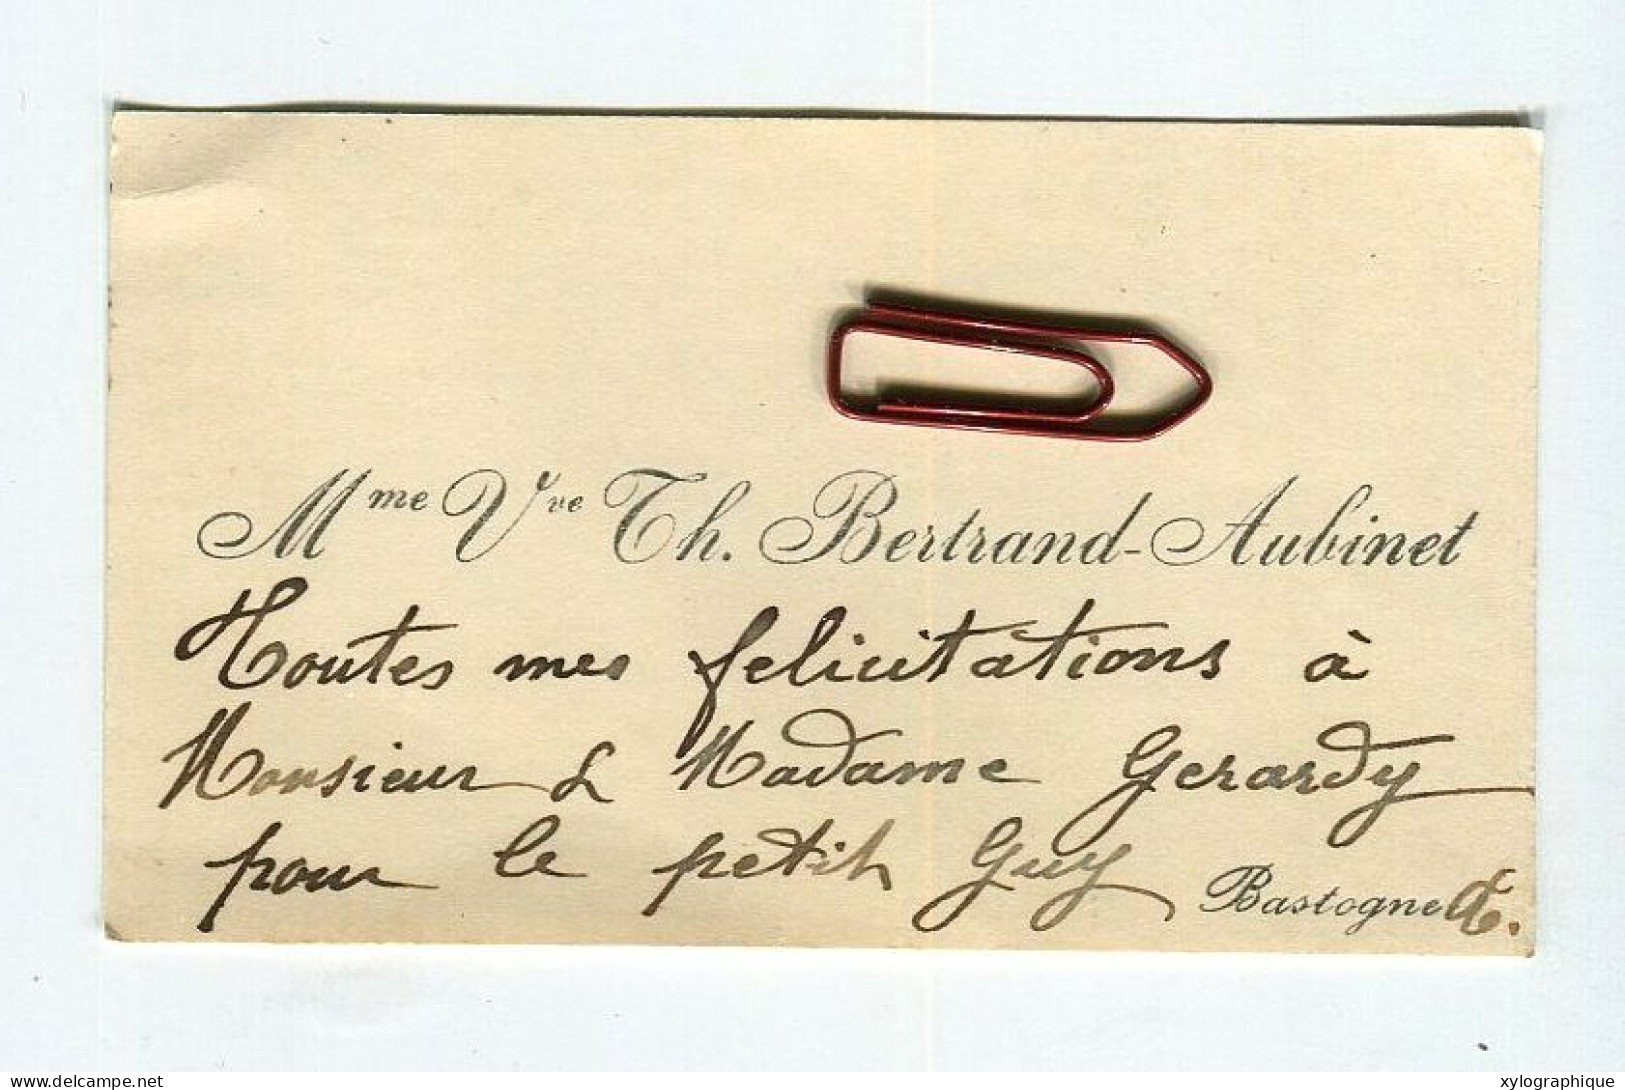 Mme Vve Th. Bertrand-Aubinet
Toutes mes felicitations à
Monsieur & Madame Gerardy
pour le petit Guy
Bastogne
http://www.delcampe.net
xylographique